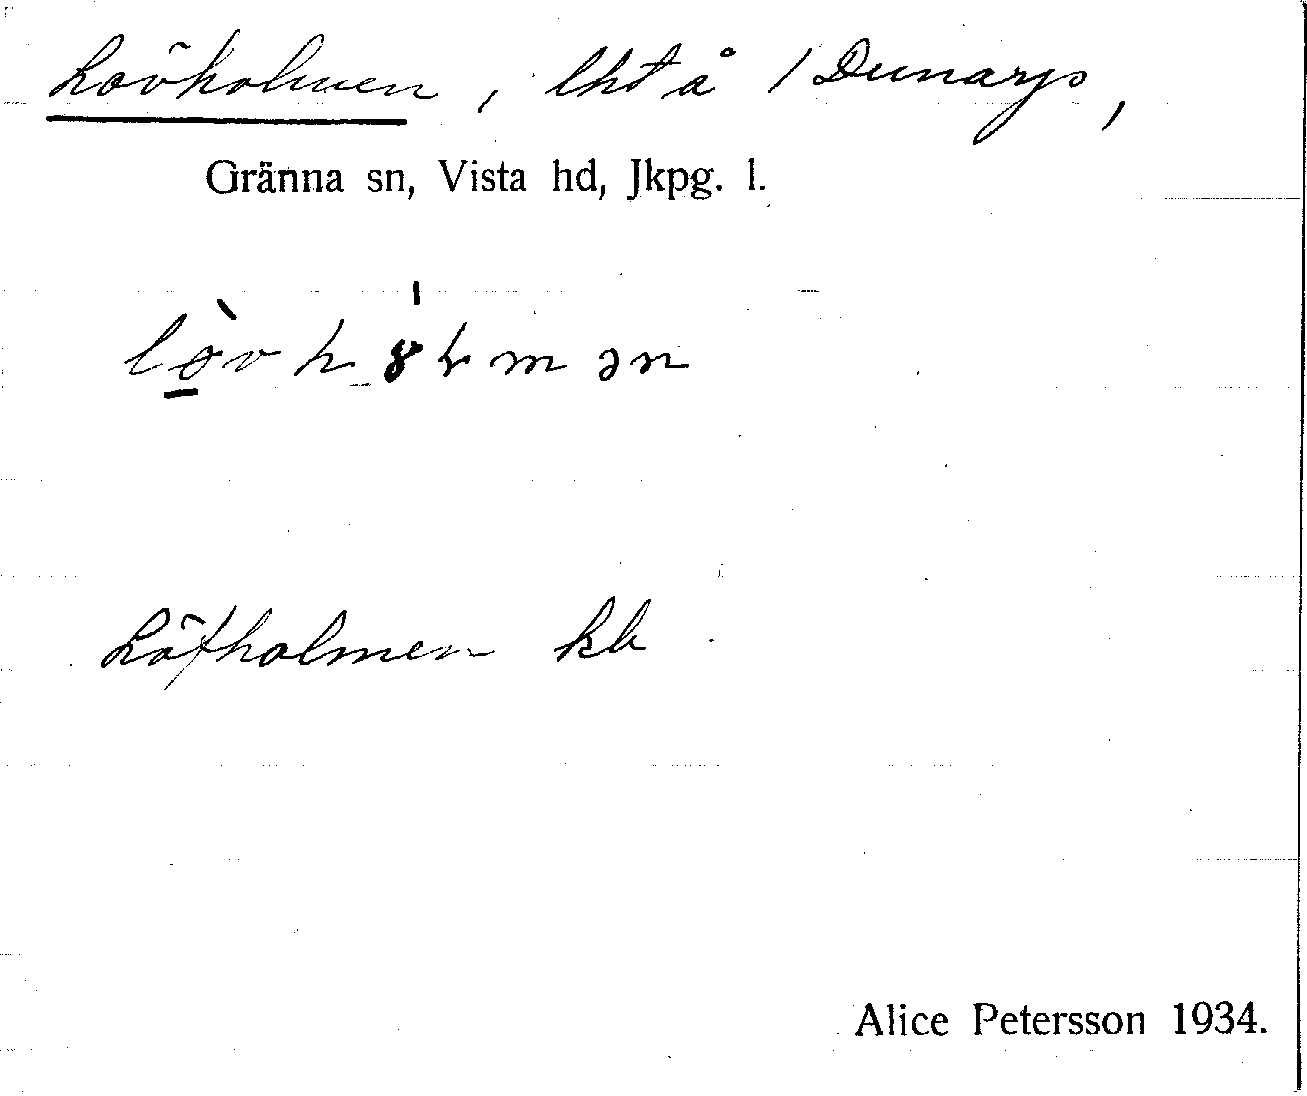 Lövholmen, lht å 1 Dunarys,
Gränna sn, Vista hd, Jkpg. l.
Löfholmen kb
Alice Petersson 1934.